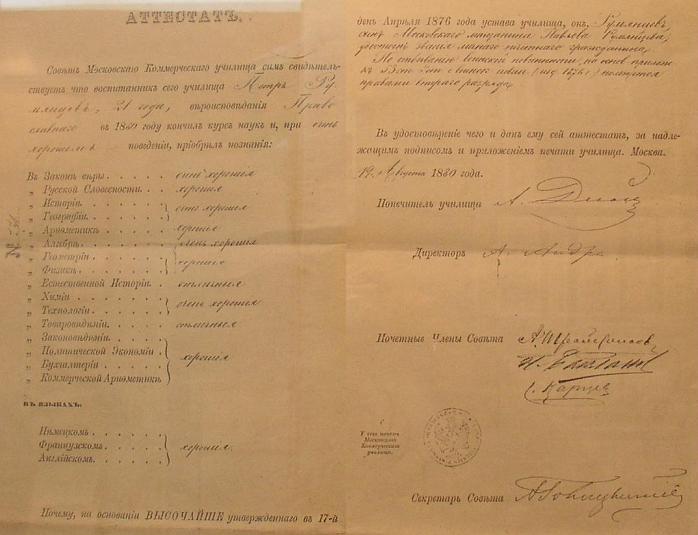 АТТЕСТАТЪ.
Совѣтъ Московскаго Коммерческаго училища симъ свидѣтель-
ствуетъ что воспитанникъ сего училища Петръ Ру-
мянцевъ, 21 года, вѣроисповѣданія Право
славнаго въ 1880 году кончилъ курсъ наукъ и, при очень
хорошемъ поведеніи, пріобрѣлъ познанія:
Въ Законѣ вѣры. очень хорошія
„ Русской Словесности. хорошія
„ Исторіи.
„ Географіи. очень хорошія
„ Ариѳметикѣ хорошія
„ Алгебрѣ. очень хорошія
„ Геометріи
„ Физикѣ. хорошія
„ Естественной Исторіи. отличныя
„ Химіи
„ Технологіи очень хорошія
„ Товаровѣдѣніи. отличныя
„ Законовѣдѣніи.
„ Политической Экономіи
„ Бухгалтеріи хорошія
„ Коммерческой Ариѳметикѣ
ВЪ ЯЗЫКАХЪ:
Нѣмецкомъ
Французскомъ хорошія.
Англійскомъ.
Почему, на основаніи ВЫСОЧАЙШЕ утвержденнаго въ 17-й
день Апрѣля 1876 года устава училища, онъ, Румянцевъ,
сынъ Московскаго мѣщанина Павла Румянцева,
удостоенъ званія личнаго почетнаго гражданина.
По отбыванію воинской повинности, на основ. прилож.
правами втораго разряда.
Въ удостовѣреніе чего и данъ ему сей аттестатъ, за надле-
жащимъ подписомъ и приложеніемъ печати училища. Москва.
Августа 1880 года.
Попечитель училища А.
Директоръ А.
Почетные Члены Совѣта А.
Н.
С. Карцев
У сего печать
Московскаго
Коммерческаго
училища.
Секретарь Совѣта